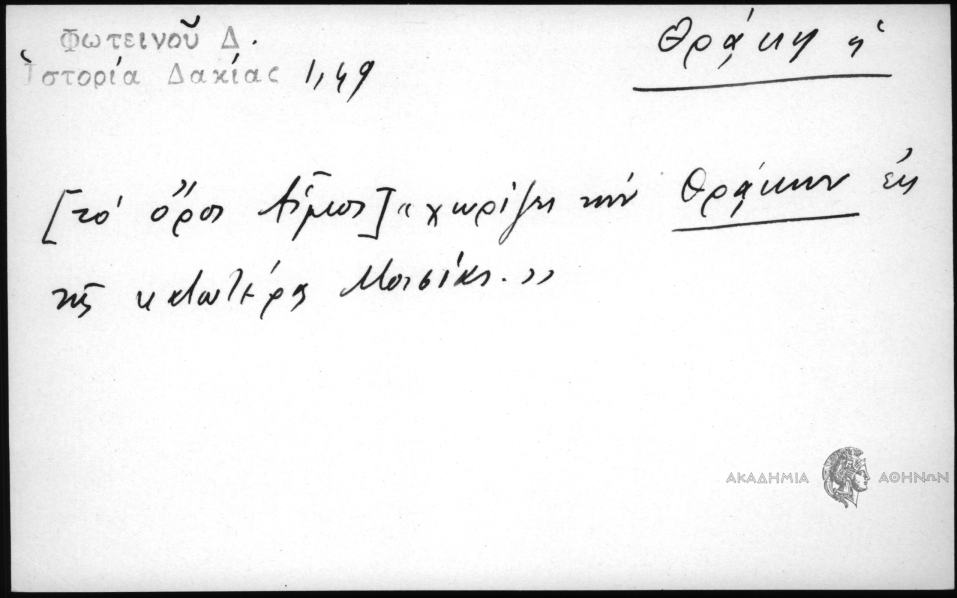 Φωτεινοῦ Δ.
Ἱστορία Δακίας 1,49
Θράκη ἡ
[τό ὄρος Αἷμος] «χωρίζει τήν Θράκην ἐκ
τῆς κατωτέρας Μοισίας.»
ΑΚΑΔΗΜΙΑ ΑΘΗΝΩΝ